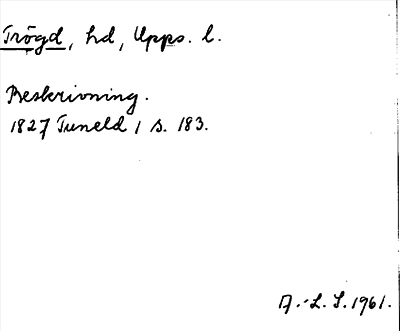 Trögd, hd, Upps. l.
Beskrivning.
1827 Tuneld 1 s. 183.
A.-L. S. 1961.